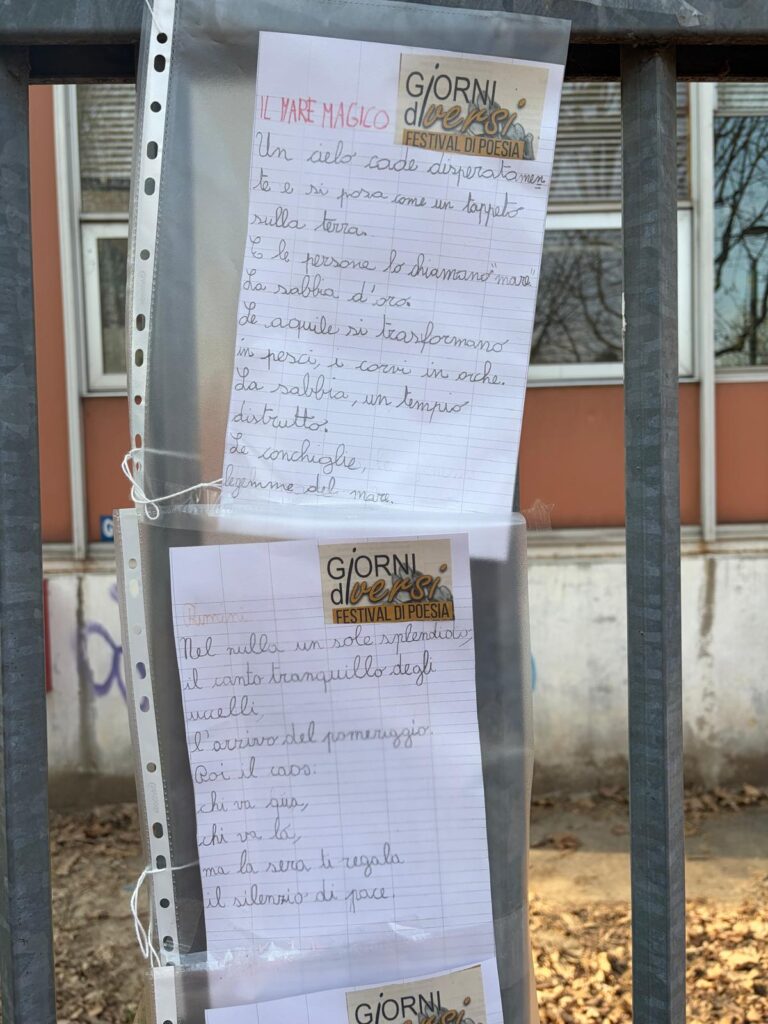 GiORNI
diversi
FESTIVAL DI POESIA
IL MARE MAGICO
Un cielo cade disperatamen
te e si posa come un tappeto
sulla terra.
E le persone lo chiamano "mare"
La sabbia d'oro.
Le aquile si trasformano
in pesci, i corvi in orche.
La sabbia, un tempio
distrutto.
Le conchiglie,
legemme del mare.
GiORNI
diversi
FESTIVAL DI POESIA
Rimini
Nel nulla un sole splendido,
il canto tranquillo degli
uccelli,
l'arrivo del pomeriggio.
Poi il caos:
chi va qua,
chi va là,
ma la sera ti regala
il silenzio di pace.
GiORNI
diversi